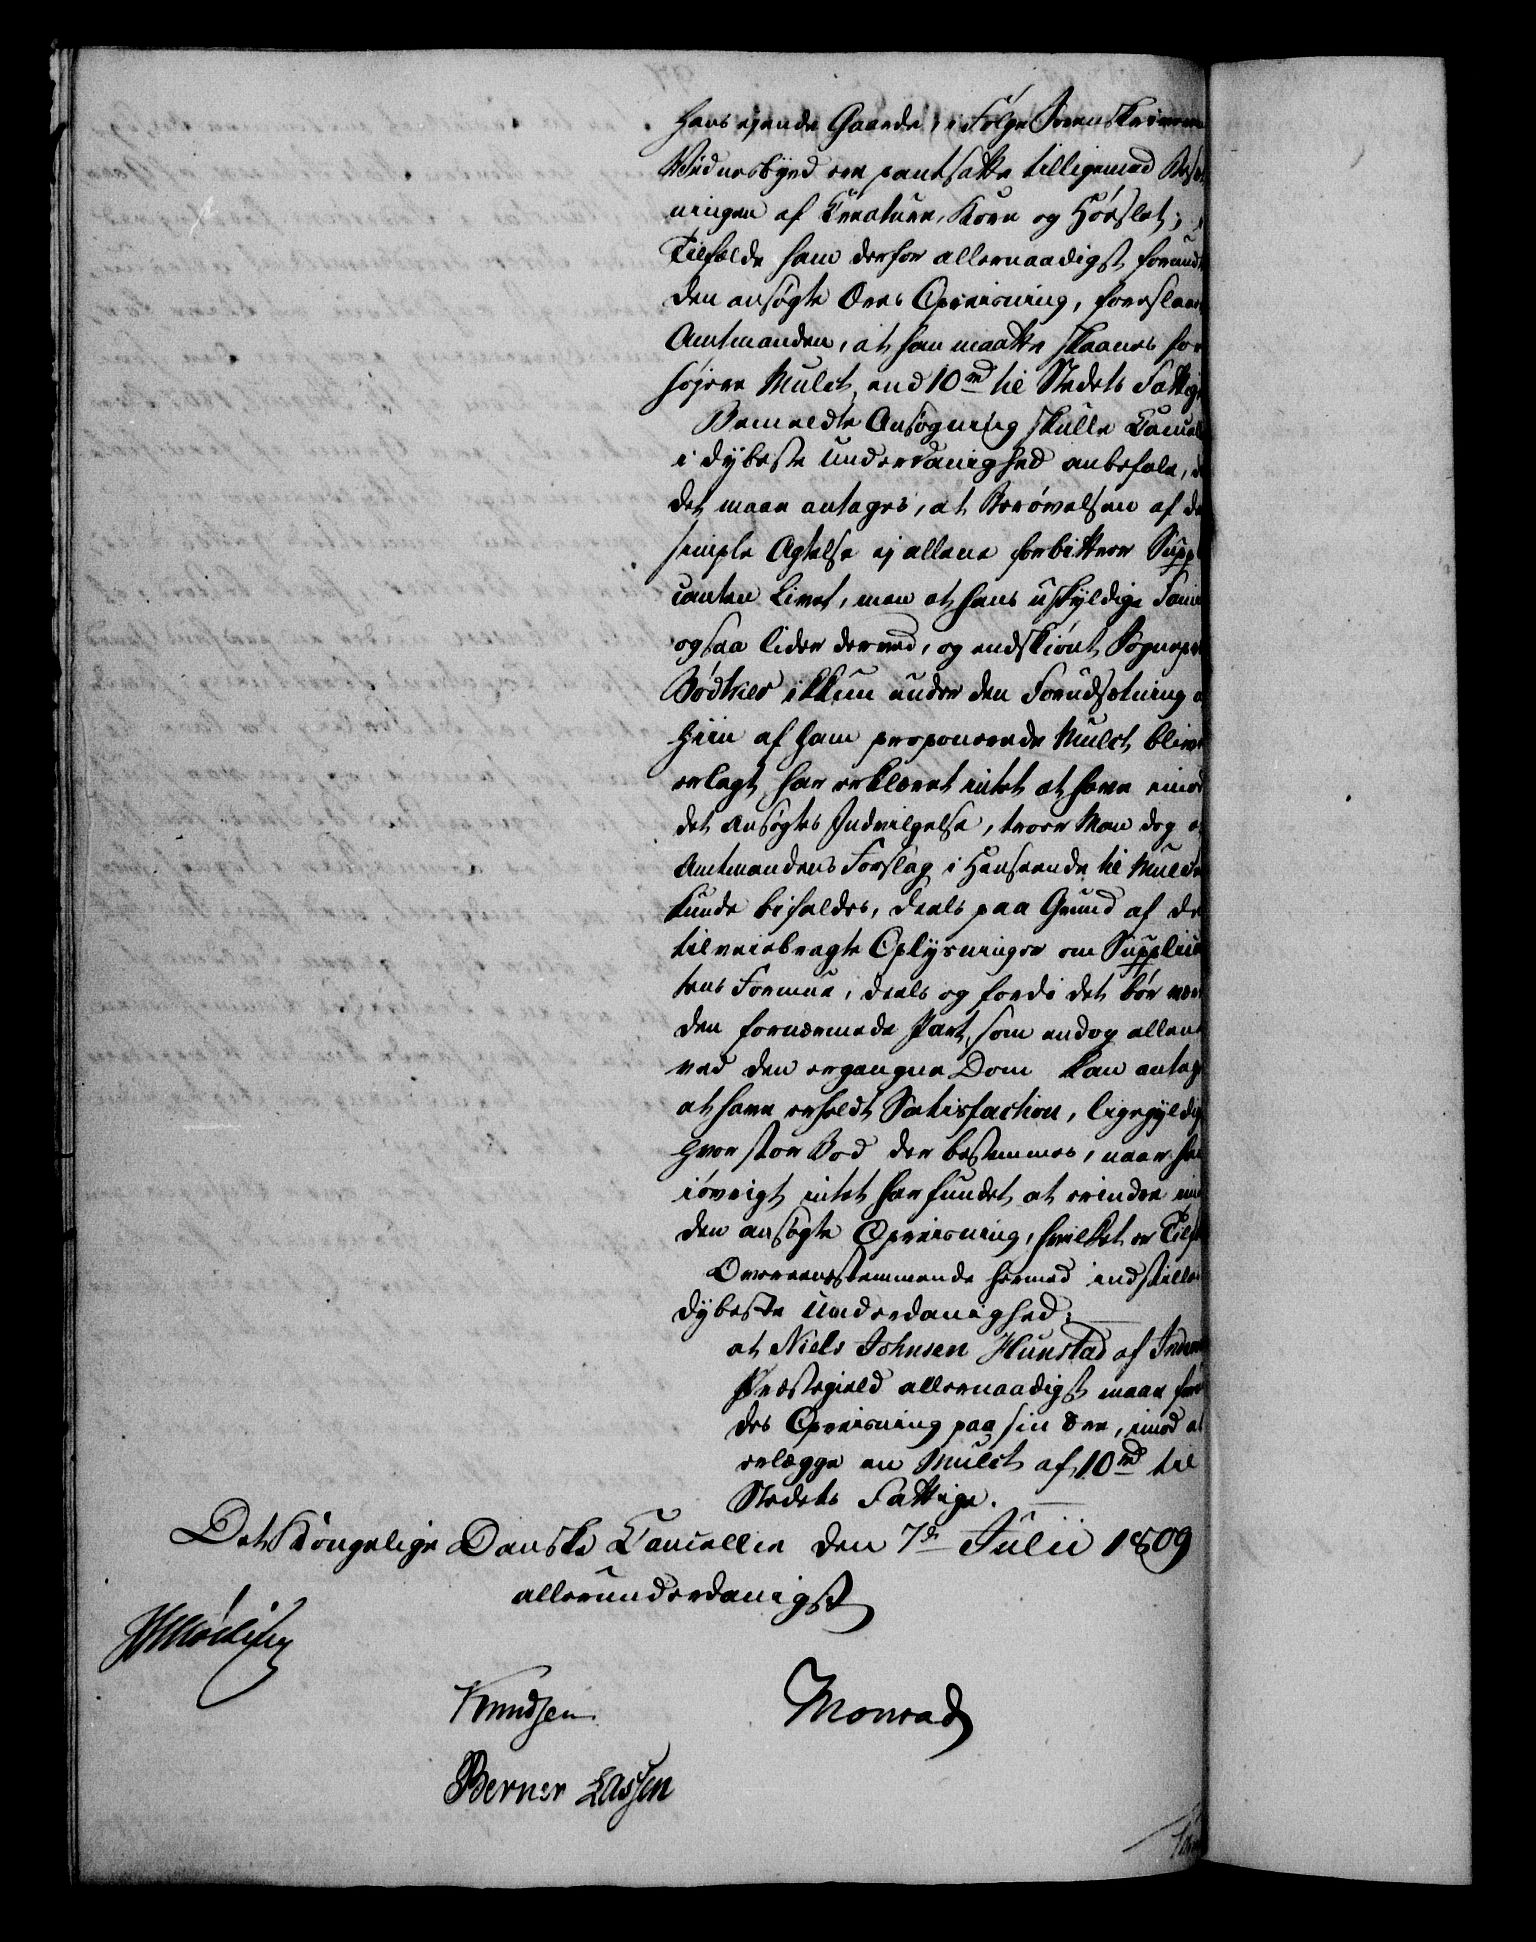 hans ejende Gaarde, i Følge Sorenskriveren
Vidnesbyrd ere pantsatte tilligemed Besæt
ningen af Creature, Korn og Høeslet; i
Tilfælde ham derfor allernaadigst forund
den ansøgte Æres Opreisning, foreslaaer
Amtmanden, at han maatte skaanes for
højere Mulct end 10 rd til Stedets Fattige
Bemeldte Ansøgning skulle Cancel
i dybeste Underdanighed anbefale, d
det maae antages, at Berøvelsen af de
simple Agtelse ej allene forbittrer Suppl
canten Livet, men at hans uskyldige Fami
ogsaa lider derved, og endskiønt Sognepr
Bødtker ikkun under den Forudsætning a
hiin af ham proponerede Mulct bliver
erlagt har erklæret intet at have imod
det Ansøgtes Indvilgelse, troer Man dog a
Amtmandens Forslag i Henseende til Mulcte
kunde bifaldes, deels paa Grund af de
tilveiebragte Oplysninger om Supplican
tens Formue, deels og fordi det bør være
den fornærmede Part, som endog allene
ved den ergangne Dom kan antag
at have erholdt Satisfaction, ligegyldig
hvor stor Bod der bestemmes, naar han
iøvrigt intet har fundet at erindre imod
den ansøgte Opreisning, hvilket er Tilf
Overeensstemmende hermed indstilles
dybeste Underdanighed:
at Niels Johnsen Hunstad af Inder
Præstegield allernaadigst maae for
des Opreisning paa sin Ære, imod at
erlægge en Mulct af 10 rd til
Stedets Fattige.
Det Kongelige Danske Cancellie den 7de Julii 1809
allerunderdanigst
Knudsen
Monrad
Berner Lassen